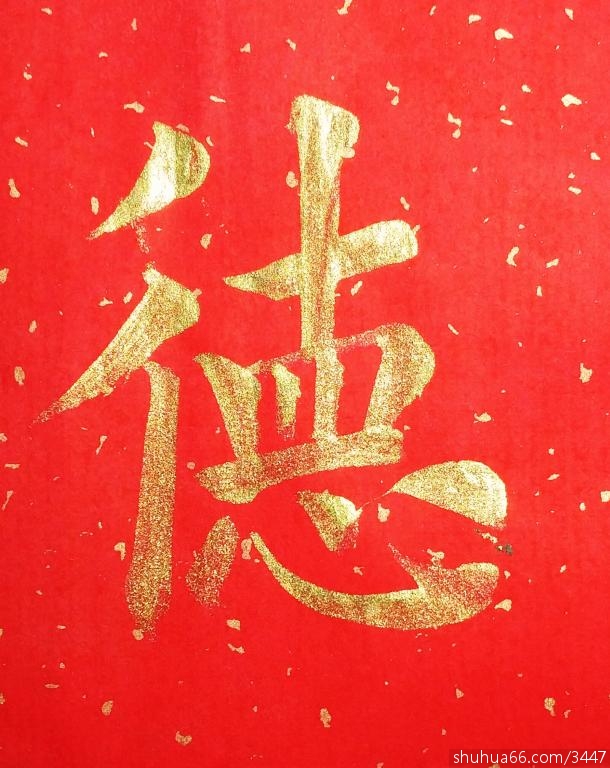 德
shuhua66.com/3447